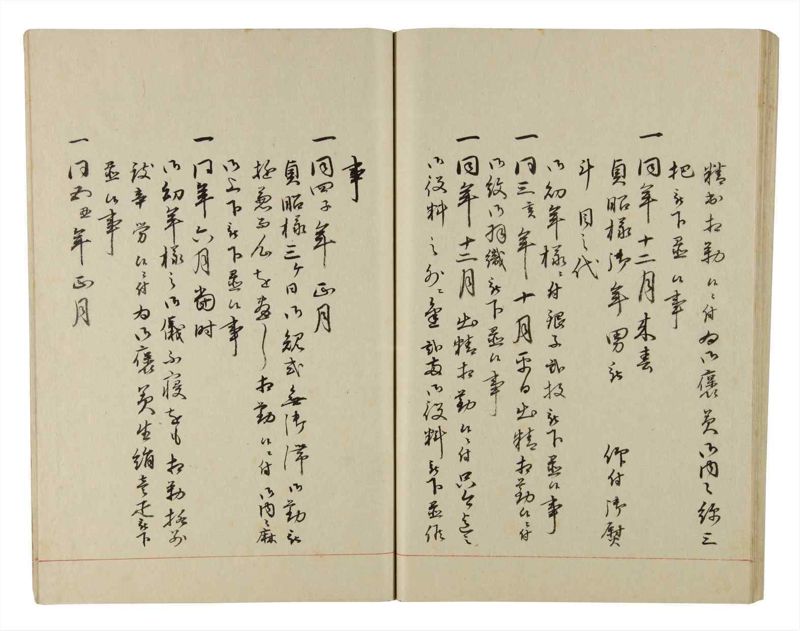 精出相勤候ニ付為御褒美御内々綿三
把被下置候事
一同年十二月来春
貞昭様御年男被 仰付御熨
斗目之代
御幼年様ニ付銀子弐枚被下置候事
一同三亥年十月平日出精相勤候ニ付
御紋御羽織被下置候事
一同年十二月出精相勤候ニ付只今迄之
御役料之外ニ金弐両御役料被下置候
事
一同四子年正月
貞昭様三ケ日御規式無御滞御勤被
御上下被下置候事
一同年六月当時
御幼年様之御儀不寝をも相勤格別
被辛労候ニ付為御褒美生絹壱疋被下
置候事
一同五丑年正月